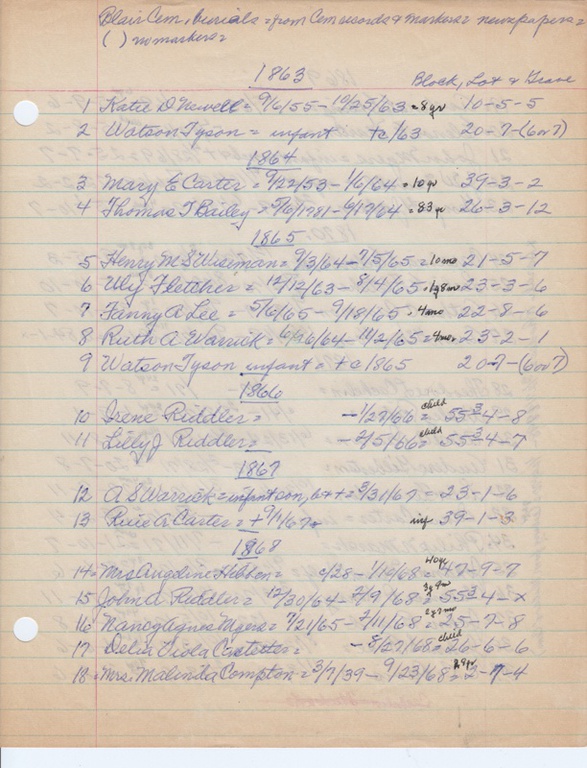 Blair Cem, burials = from Cem records & markers = newspapers =
( ) no markers =
1863 Block, Lot & Grave
1 Katie D Newell = 9/6/55 - 10/25/63 = 8 yr 10-5-5
2 Watson Tyson = infant + c/63 20-7-(6 or 7)
1864
3 Mary E Carter = 9/22/53 - 1/6/64 = 10 yr 39-3-2
4 Thomas T Bailey = 5/6/1781 - 6/17/64 = 83 yr 26-3-12
1865
5 Henry M S Wiseman = 9/3/64 - 7/5/65 = 10 mo 21-5-7
6 Wly Fletcher = 12/12/63 - 8/4/65 = 1 y 8 mo 23-3-6
7 Fanny A Lee = 5/6/65 - 9/18/65 = 4 mo 22-8-6
8 Ruth A Warrick = 6/26/64 - 10/2/65 = 4 mo 23-2-1
9 Watson Tyson infant = + c 1865 20-7-(6 or 7)
1866
10 Irene Riddler = - 1/27/66 = child 55 3/4-8
11 Lilly J Riddler = - 2/5/66 = child 55 3/4-7
1867
12 A S Warrick = infant son, b + + = 3/31/67 - 23-1-6
13 Ruie A Carter = + 9/1/67 inf 39-1-3
1868
14 = Mrs Angeline Hibben = c/28 - 1/10/68 = 40 yr 47-9-7
15 John A Riddler = 12/30/64 - 2/9/68 = 3 y 55 3/4 - x
16 Nancy Agnes Myers = 7/21/65 - 2/11/68 = 2 y 7 mo 25-7-8
17 Delia Viola Castetter = - 8/27/68 = child 26-6-6
18 = Mrs. Malinda Compton = 3/7/39 - 9/23/68 = 29 yr 2-7-4